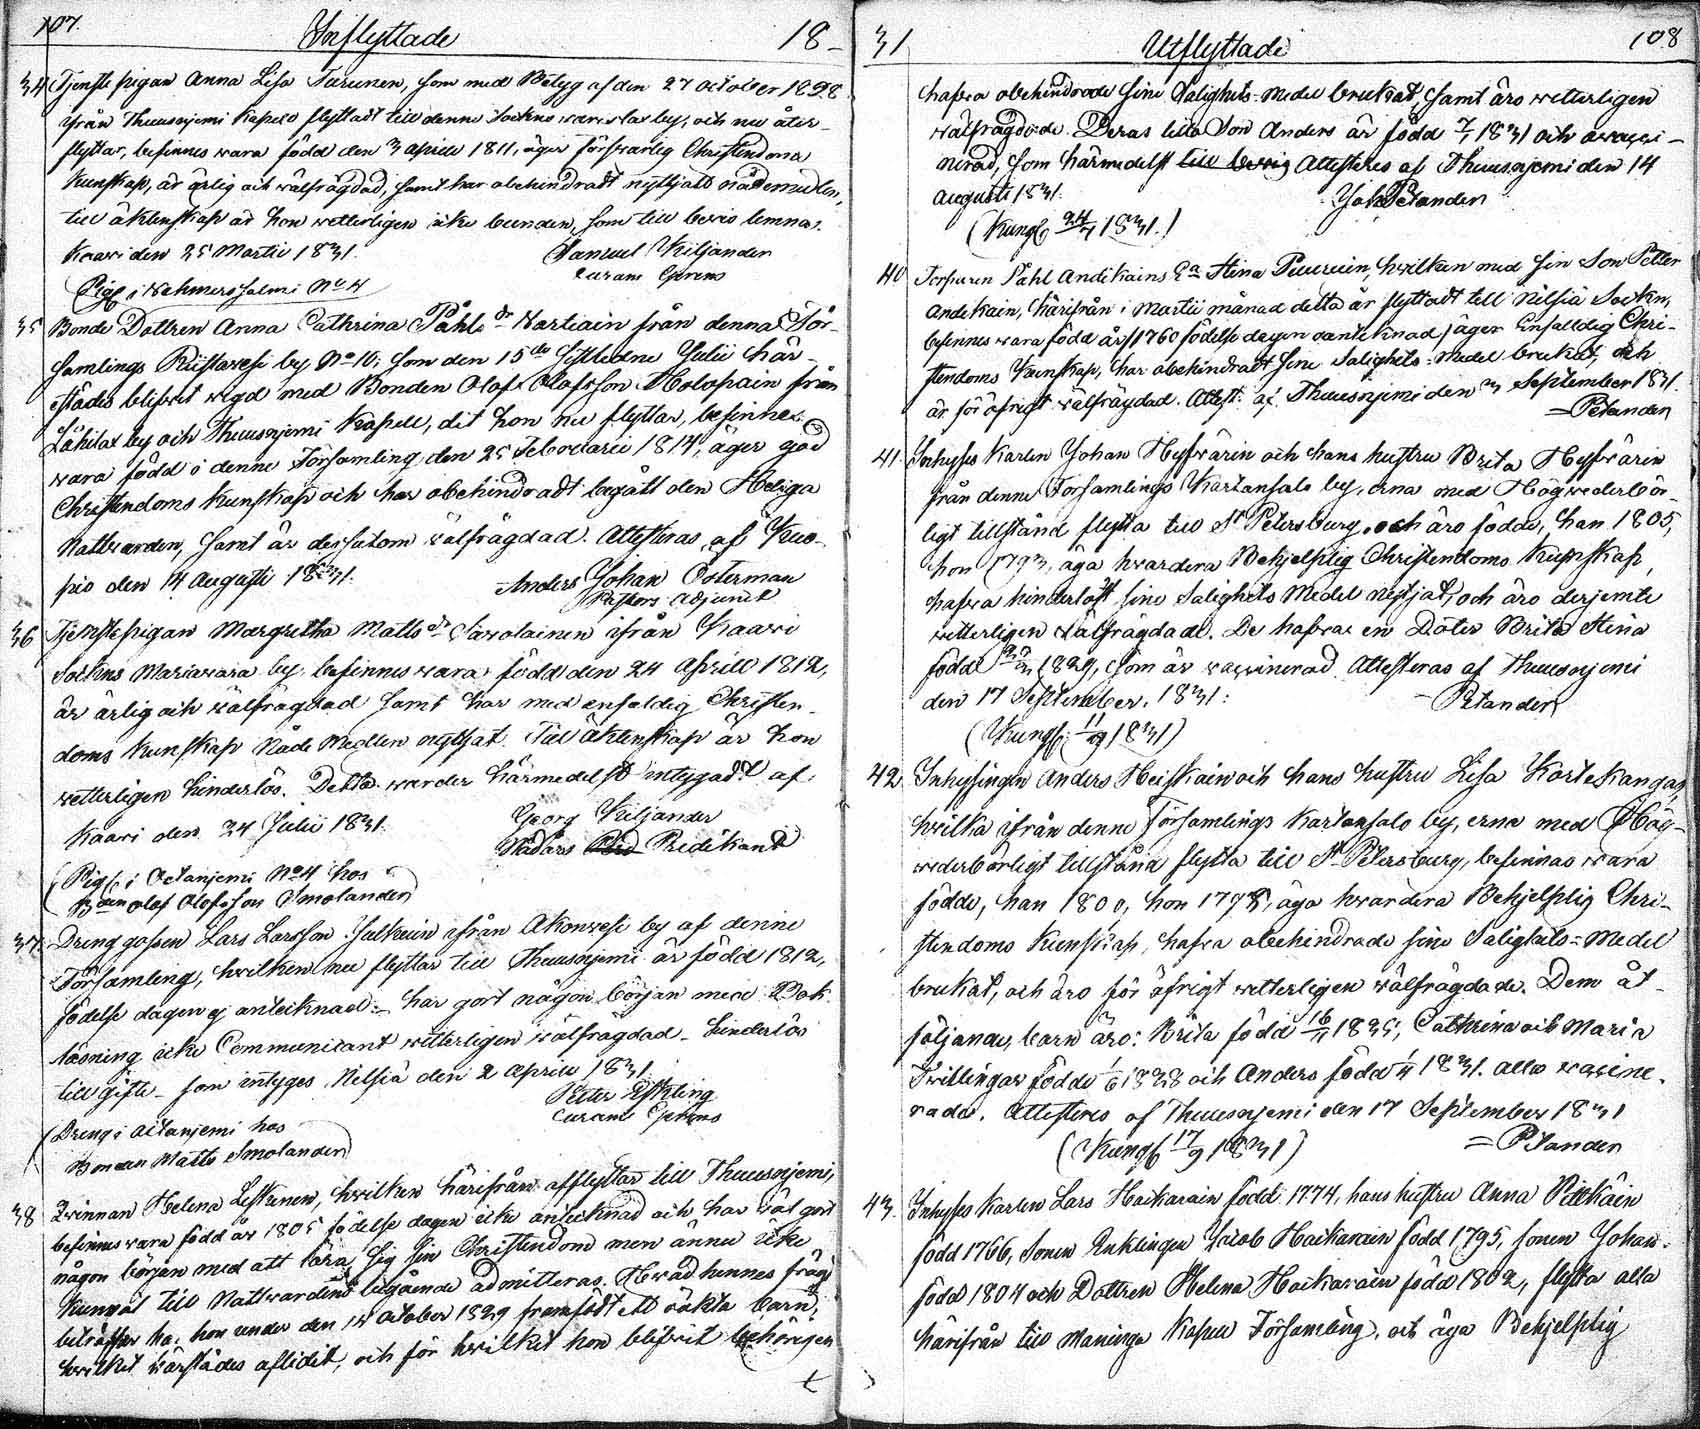 107.
Inflyttade
18-
34 Tjenste pigan Anna Lisa Turunen, som med Betyg af den 27 october 1828
ifrån Thuusnjemi Kapell flyttadt till denne Sockns warislax by, och nu åter-
flyttar, befinnes wara född den 3 aprill 1811, äger försvarlig Christendoms
Kunskap, är ärlig och wälfrägdad, samt har obehindradt nyttjadt nådemedlen,
till äktenskap är hon wetterligen icke bunden, som till bewis lemnas.
Kaawi den 25 Martii 1831.
Samuel Kiljander
curam Gerens
(Piga i Wehmersalmi No 4
35 Bonde Dottren Anna Cathrina Påhls dr Wartiain från denna För-
samlings Riistawesi by No 10; som den 15de sistledne Julii här-
städes blifwit wigd med Bonden Olof Olofsson Holopain från
Lähilax by och Thuusnjemi Kapell, dit hon nu flyttar, befinnes
wara född i denne Församling den 25 Februarii 1814, äger god
Christendoms Kunskap och har obehindradt begått den Heliga
Nattvarden, samt är dessutom wälfrägdad. Attesteras af Kuo-
pio den 14 Augusti 1831.
Anders Johan Österman
Pastors Adjunct
36 Tjenstepigan Margretha Matts dr Sawolainen ifrån Kaawi
Sockns Mariawara by, befinnes wara född den 24 Aprill 1812,
är ärlig och wälfrägdad samt har med enfaldig Christen-
doms Kunskap Nåde Medlen nyttjat. Till äktenskap är hon
wetterligen hinderlös. Detta warder härmedelst intygadt af.
Kaawi den 24 Julii 1831.
Georg Kiljander
Nådårs Predikant
(Piga i Oetanjemi No 4 hos
Bonden Olof Olofsson Smolander)
37. Dreng gossen Lars Larsson Jalkain ifrån Akonwesi by af denne
Församling, hvilken nu flyttar till Thuusnjemi är född 1812,
födelse dagen ej antecknad: har gort någon början med Bok
läsning icke Communicant wetterligen wälfrägdad - hinderlös
till gifte - som intyges. Nilsiä den 2 aprill 1831.
Petter Eskling
curam Gerens
(Dreng i Aitanjemi hos
Bonden Matts Smolander)
38 Qvinnan Helena Leskinen, hwilken härifrån afflyttar till Thuusnjemi,
befinnes wara född år 1805 födelse dagen icke antecknad och har wäl gort
någon början med att lära sig sin Christendom men ännu icke
kunnat till Nattvardens begående admitteras. Hwad hennes frägd
beträffar ha. hon under den 14 october 1829 framfödt ett oäkta barn,
hwilket härstädes aflidit, och för hwilket hon blifwit behörigen
31
Utflyttade
108
hafwa obehindrade sine Salighets-Medel brukat, samt äro wetterligen
wälfrägdade. Deras lilla Son Anders är född 7/7 1831 och waxsi-
nerad, som härmedelst till bewis Attesteras af Thuusnjemi den 14
augusti 1831.
Joh Petander
(Kungs 24/7 1831.)
40 Torparen Påhl Andikains Ea Stina Puurnin, hwilken med sin Son Petter
Andikain, härifrån i Martii månad detta år flyttadt till Nilsiä Sockn,
befinnes wara född år 1760 födelse dagen oantecknad, äger Enfalldig Chri-
stendoms Kunskap, har obehindradt sine Salighets-Medel brukat, och
är för öfrigt wälfrägdad. Attest: af Thuusnjemi den 3 September 1831.
Petander
41. Inhyses Karlen Johan Hyfwärin och hans hustru Brita Hyfwärin
från denne Församlings Kartansalo by, erna med Högwederbör-
ligt tillstånd flytta till St Petersburg. och äro födde, han 1805,
hon 1793, äga hwardera Behjelplig Christendoms Kunskap,
hafwa hinderlöst sine Salighets Medel nyttjat, och äro derjemte
wetterligen wälfrägdade. De hafwa en Doter Brita Stina
född 1829, som är waxinerad. Attesteras af Thuusnjemi
den 17 September. 1831:
Petander
(Kungs: 11/9 1831)
42. Inhysingen Anders Heiskain och hans hustru Lisa Kortekangas,
hwilka ifrån denne Församlings Kartansalo by, erna med Hög-
wederbörligt tillstånd flytta till St Petersburg, befinnas wara
födde, han 1800, hon 1798, äga hwardera Behjelplig Chri-
stendoms Kunskap, hafwa obehindrade sine Salighets-Medel
brukat, och äro för öfrigt wetterligen wälfrägdade. Dem åt-
följande, barn äro: Brita född 16/7 1825; Cathrina och Maria
Twillingar födde 1/6 1828 och Anders född 1/4 1831. alla waxine-
rade. Attesteres af Thuusnjemi den 17 September 1831
(Kungs 17/9 1831)
= Petander
43. Inhyses Karlen Lars Hackarain född 1774, hans hustru Anna Pitkäin
född 1766, Sonen Enklingen Jacob Hackarain född 1795, sonen Johan
född 1804 och Dottren Helena Hackarain född 1802, flytta alla
härifrån till Maninga Kapell Församling, och äga Behjelplig